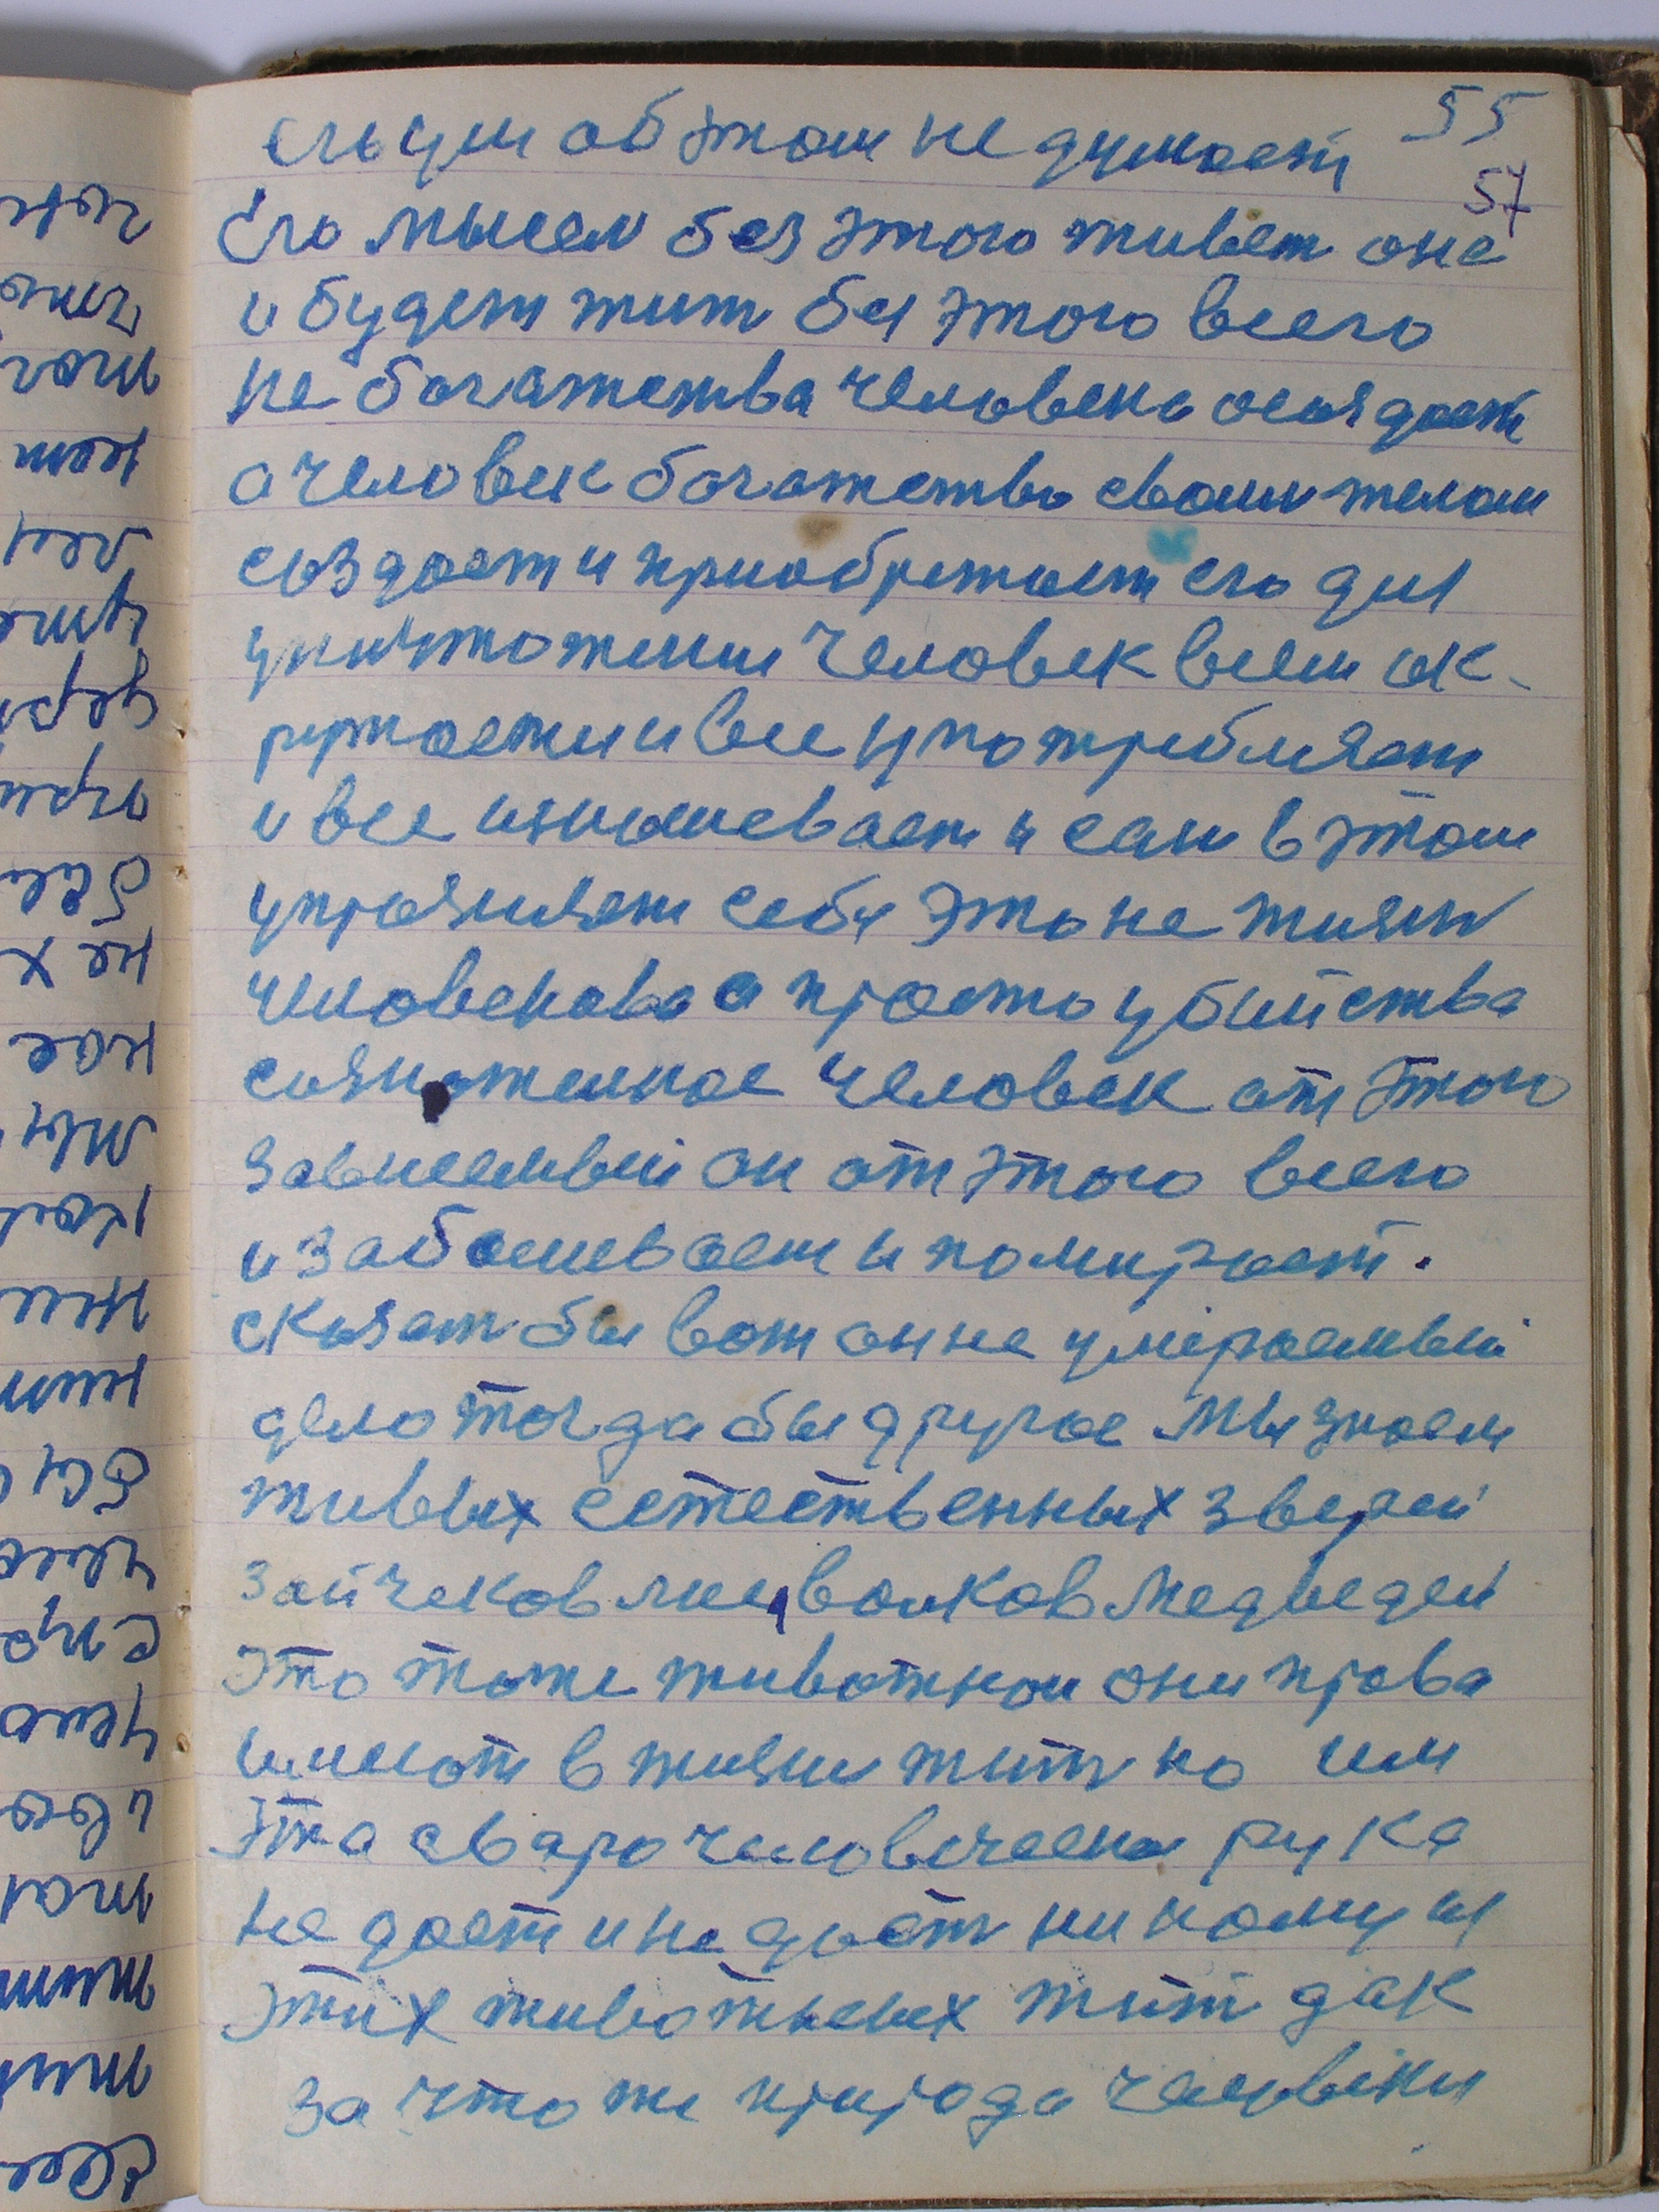 55
его ум об этом не думает
57
Его мысел без этого живет оне
и будет жит без этого всего
не богатства человека осаждает
а человек богатство своим телом
создает и приобретает его для
уничтожении человек всем ок-
ружаетси и все употребляет
и все изнашевает и сам в этом
упражняет себя это не жизн
человекова а просто убийства
созноженное человек от этого
зависемый он от этого всего
и заболевает и помирает.
сказат бы вот он не умираемый
дело тогда бы другое мы знаем
живых естественных зверей
зайчеков лис, волков медведей
это тоже животнои они права
имеют в жизни жит но им
эта сваро человеческа рука
не дает и не даст никому из
этих животных жит дак
за что же природа человеки